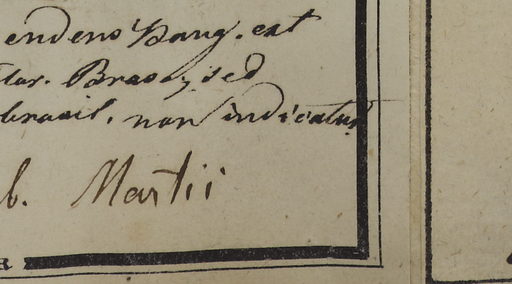 endens Spreng. est
Bras., sed
brasil. non indicatur
b. Martii